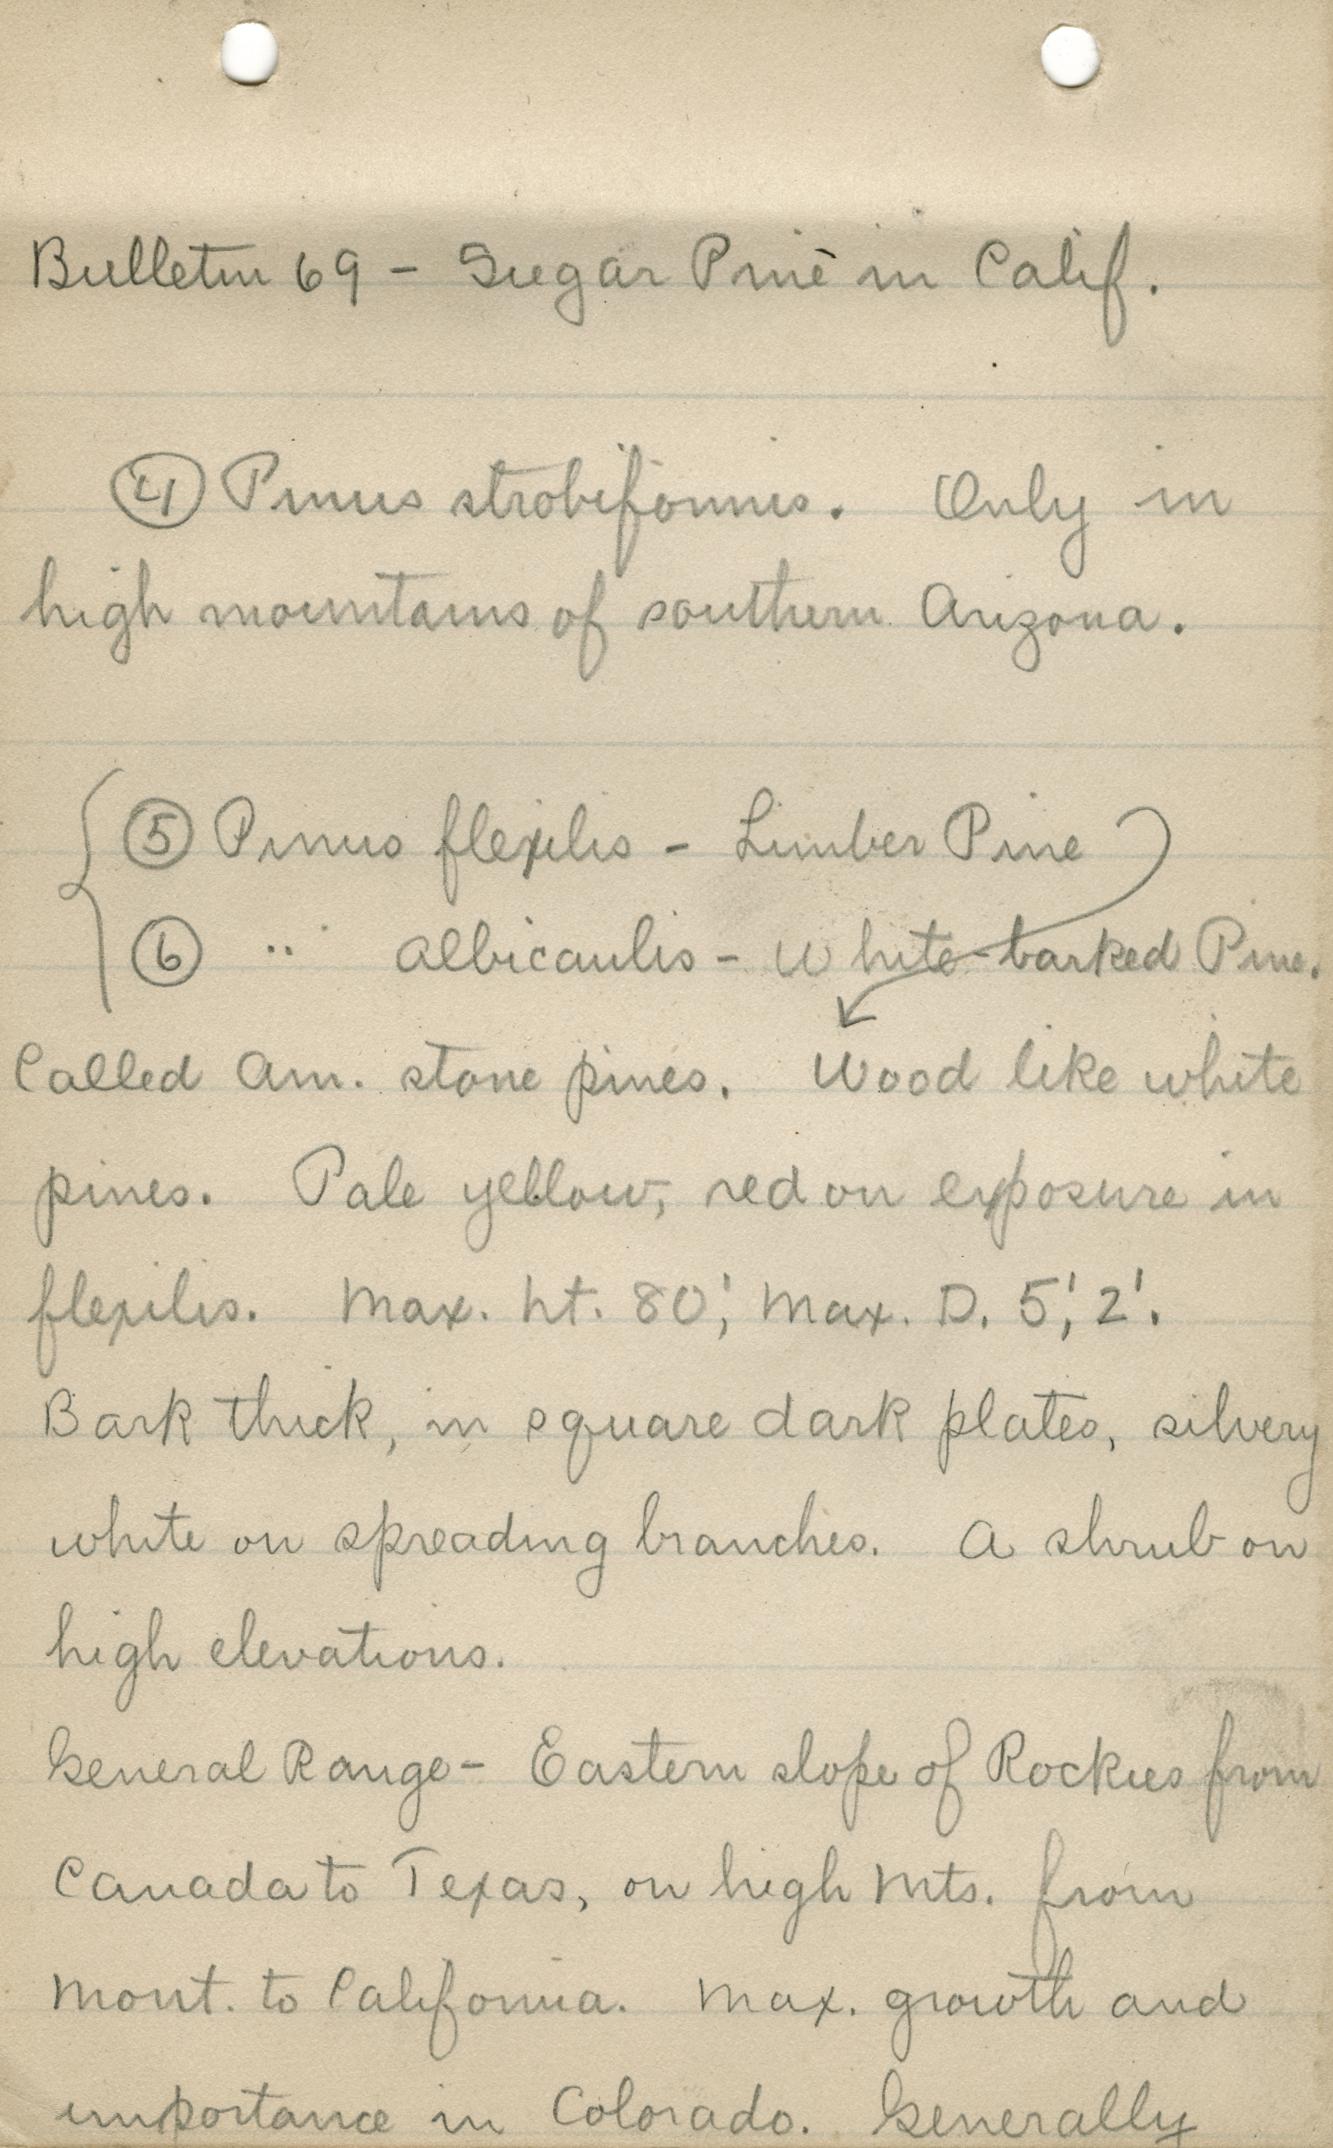 Bulletin 69 - Sugar Pine in Calif.
④ Pinus strobiformis. Only in
high mountains of southern Arizona.
⑤ Pinus flexilis - Limber Pine
⑥ " albicaulis - White-barked Pine.
Called Am. stone pines. Wood like white
pines. Pale yellow, red on exposure in
flexilis. Max. ht. 80', Max. D. 5', 2'.
Bark thick, in square dark plates, silvery
white on spreading branches. A shrub on
high elevations.
General Range - Eastern slope of Rockies from
Canada to Texas, on high Mts. from
Mont. to California. Max. growth and
importance in Colorado. Generally